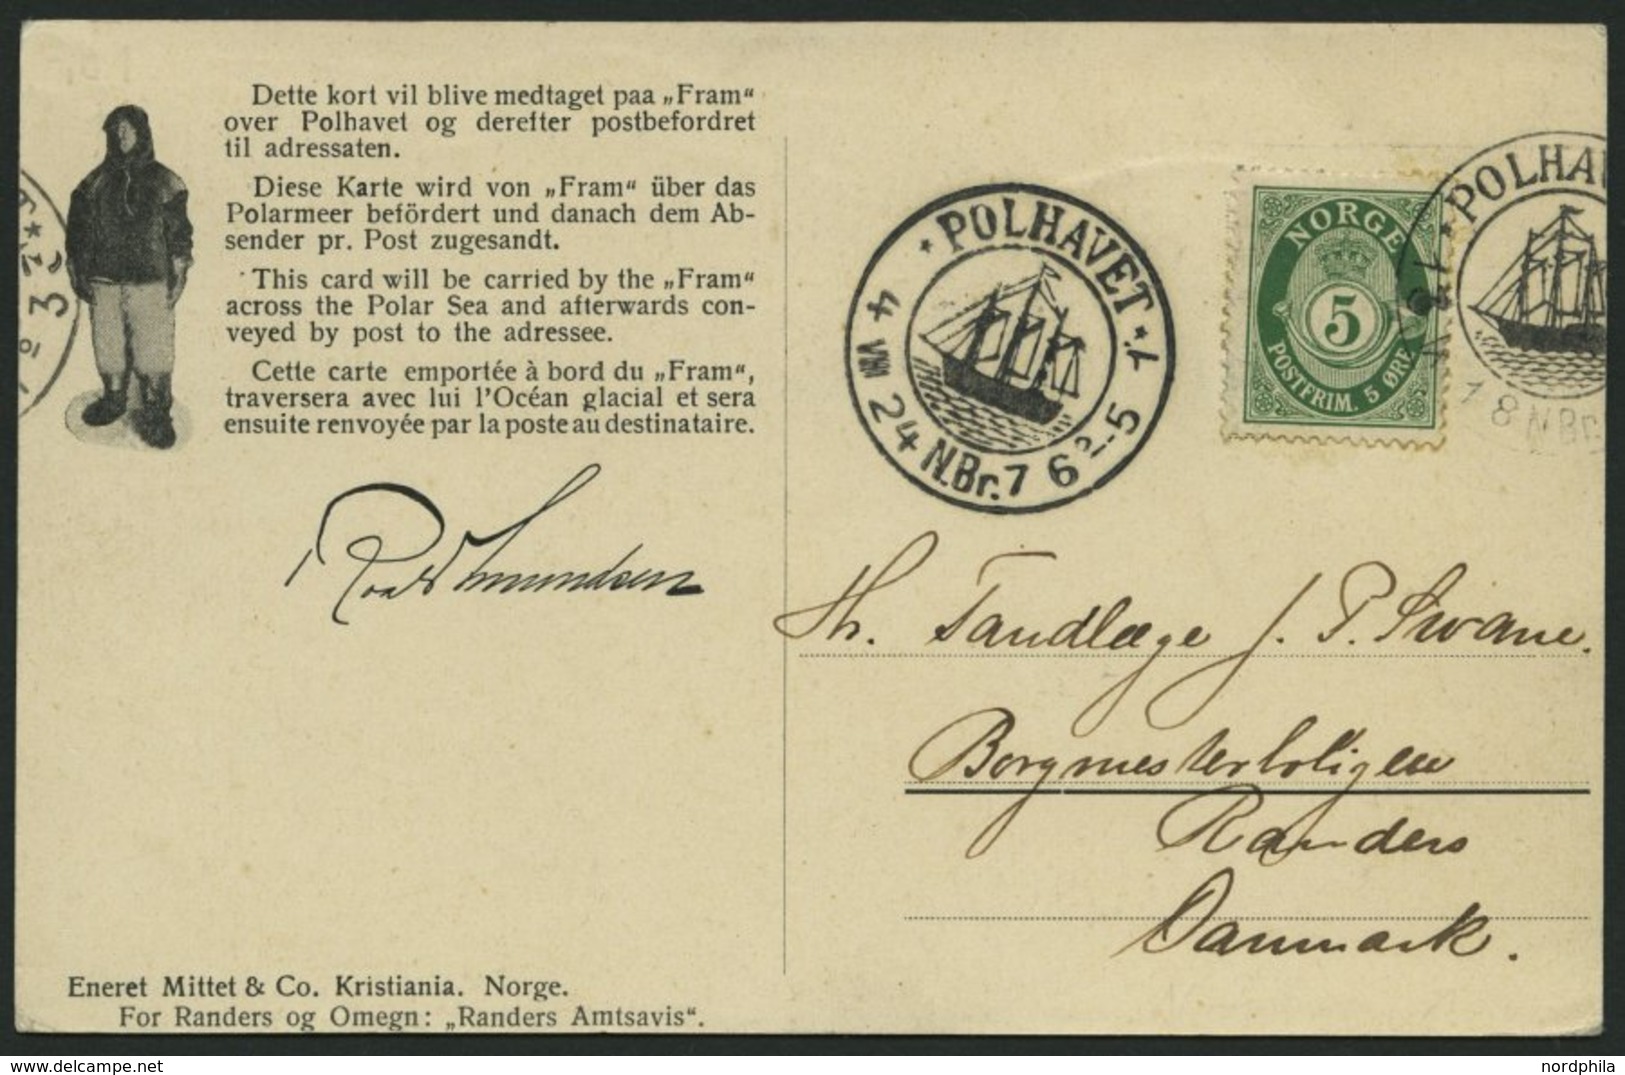 Dette kort vil blive medtaget paa „Fram“
over Polhavet og derefter postbefordret
til adressaten.
Diese Karte wird von „Fram“ über das
Polarmeer befördert und danach dem Ab-
sender pr. Post zugesandt.
This card will be carried by the „Fram“
across the Polar Sea and afterwards con-
veyed by post to the adressee.
Cette carte emportée à bord du „Fram“,
traversera avec lui l'Océan glacial et sera
ensuite renvoyée par la poste au destinataire.
Roald Amundsen
Eneret Mittet & Co. Kristiania. Norge.
For Randers og Omegn: „Randers Amtsavis“.
* POLHAVET *
4 VIII 24 N.Br. 76
NORGE
5
POSTFRIM. 5 ØRE
* POLHAV
18 N Br.
Hr. Tandlæge J. P. Swane.
Borgmesterboligen
Randers
Danmark.
nordphila.com